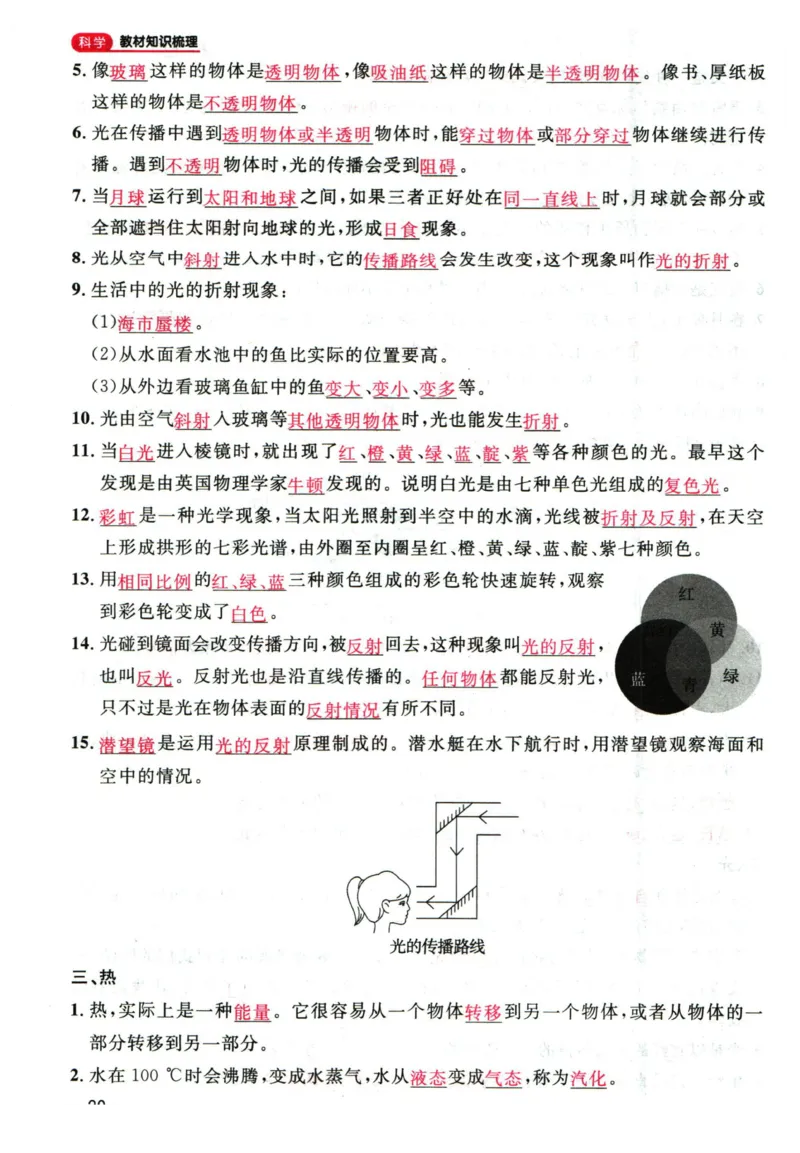 科学 教材知识梳理
5. 像玻璃这样的物体是透明物体,像吸油纸这样的物体是半透明物体。像书、厚纸板
这样的物体是不透明物体。
6. 光在传播中遇到透明物体或半透明物体时,能穿过物体或部分穿过物体继续进行传
播。遇到不透明物体时,光的传播会受到阻碍。
7. 当月球运行到太阳和地球之间,如果三者正好处在同一直线上时,月球就会部分或
全部遮挡住太阳射向地球的光,形成日食现象。
8. 光从空气中斜射进入水中时,它的传播路线会发生改变,这个现象叫作光的折射。
9. 生活中的光的折射现象:
(1)海市蜃楼。
(2)从水面看水池中的鱼比实际的位置要高。
(3)从外边看玻璃鱼缸中的鱼变大、变小、变多等。
10. 光由空气斜射入玻璃等其他透明物体时,光也能发生折射。
11. 当白光进入棱镜时,就出现了红、橙、黄、绿、蓝、靛、紫等各种颜色的光。最早这个
发现是由英国物理学家牛顿发现的。说明白光是由七种单色光组成的复色光。
12. 彩虹是一种光学现象,当太阳光照射到半空中的水滴,光线被折射及反射,在天空
上形成拱形的七彩光谱,由外圈至内圈呈红、橙、黄、绿、蓝、靛、紫七种颜色。
13. 用相同比例的红、绿、蓝三种颜色组成的彩色轮快速旋转,观察
到彩色轮变成了白色。
红
黄
蓝
青
绿
14. 光碰到镜面会改变传播方向,被反射回去,这种现象叫光的反射,
也叫反光。反射光也是沿直线传播的。任何物体都能反射光,
只不过是光在物体表面的反射情况有所不同。
15. 潜望镜是运用光的反射原理制成的。潜水艇在水下航行时,用潜望镜观察海面和
空中的情况。
光的传播路线
三、热
1. 热,实际上是一种能量。它很容易从一个物体转移到另一个物体,或者从物体的一
部分转移到另一部分。
2. 水在 100 ℃时会沸腾,变成水蒸气,水从液态变成气态,称为汽化。